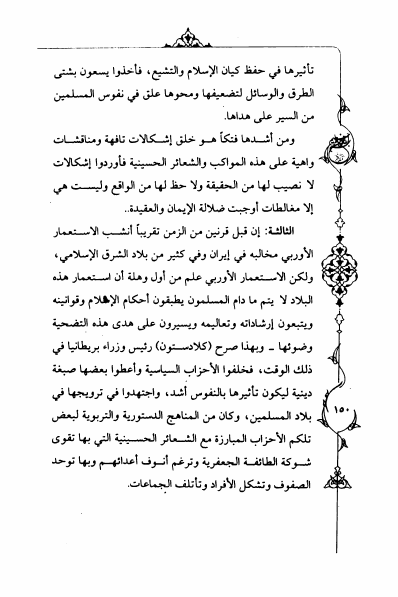 تأثيرها في حفظ كيان الإسلام والتشيع، فأخذوا يسعون بشتى
الطرق والوسائل لتضعيفها ومحوها علق في نفوس المسلمين
من السير على هداها.
ومن أشدها فتكاً هـو خلق إشكالات تافهة ومناقشات
واهية على هذه المواكب والشعائر الحسينية فأوردوا إشكالات
لا نصيب لها من الحقيقة ولا حظ لها من الواقع وليست هي
إلا مغالطات أوجبت ضلالة الإيمان والعقيدة..
الثالثة: إن قبل قرنين من الزمن تقريباً أنشب الاستعمار
الأوربي مخالبه في إيران وفي كثير من بلاد الشرق الإسلامي،
ولكن الاستعمار الأوربي علم من أول وهلة أن استعمار هذه
البلاد لا يتم ما دام المسلمون يطبقون أحكام الإسلام وقوانينه
ويتبعون إرشاداته وتعاليمه ويسيرون على هدى هذه التضحية
وضوئها ـ وبهذا صرح (كلادستون) رئيس وزراء بريطانيا في
ذلك الوقت، فخلفوا الأحزاب السياسية وأعطوا بعضها صبغة
دينية ليكون تأثيرها بالنفوس أشد، واجتهدوا في ترويجها في
بلاد المسلمين، وكان من المناهج الدستورية والتربوية لبعض
تلكم الأحزاب المبارزة مع الشعائر الحسينية التي بها تقوى
شوكة الطائفة الجعفرية وترغم أنوف أعدائهم وبها توحد
الصفوف وتشكل الأفراد وتأتلف الجماعات.
١٥٠